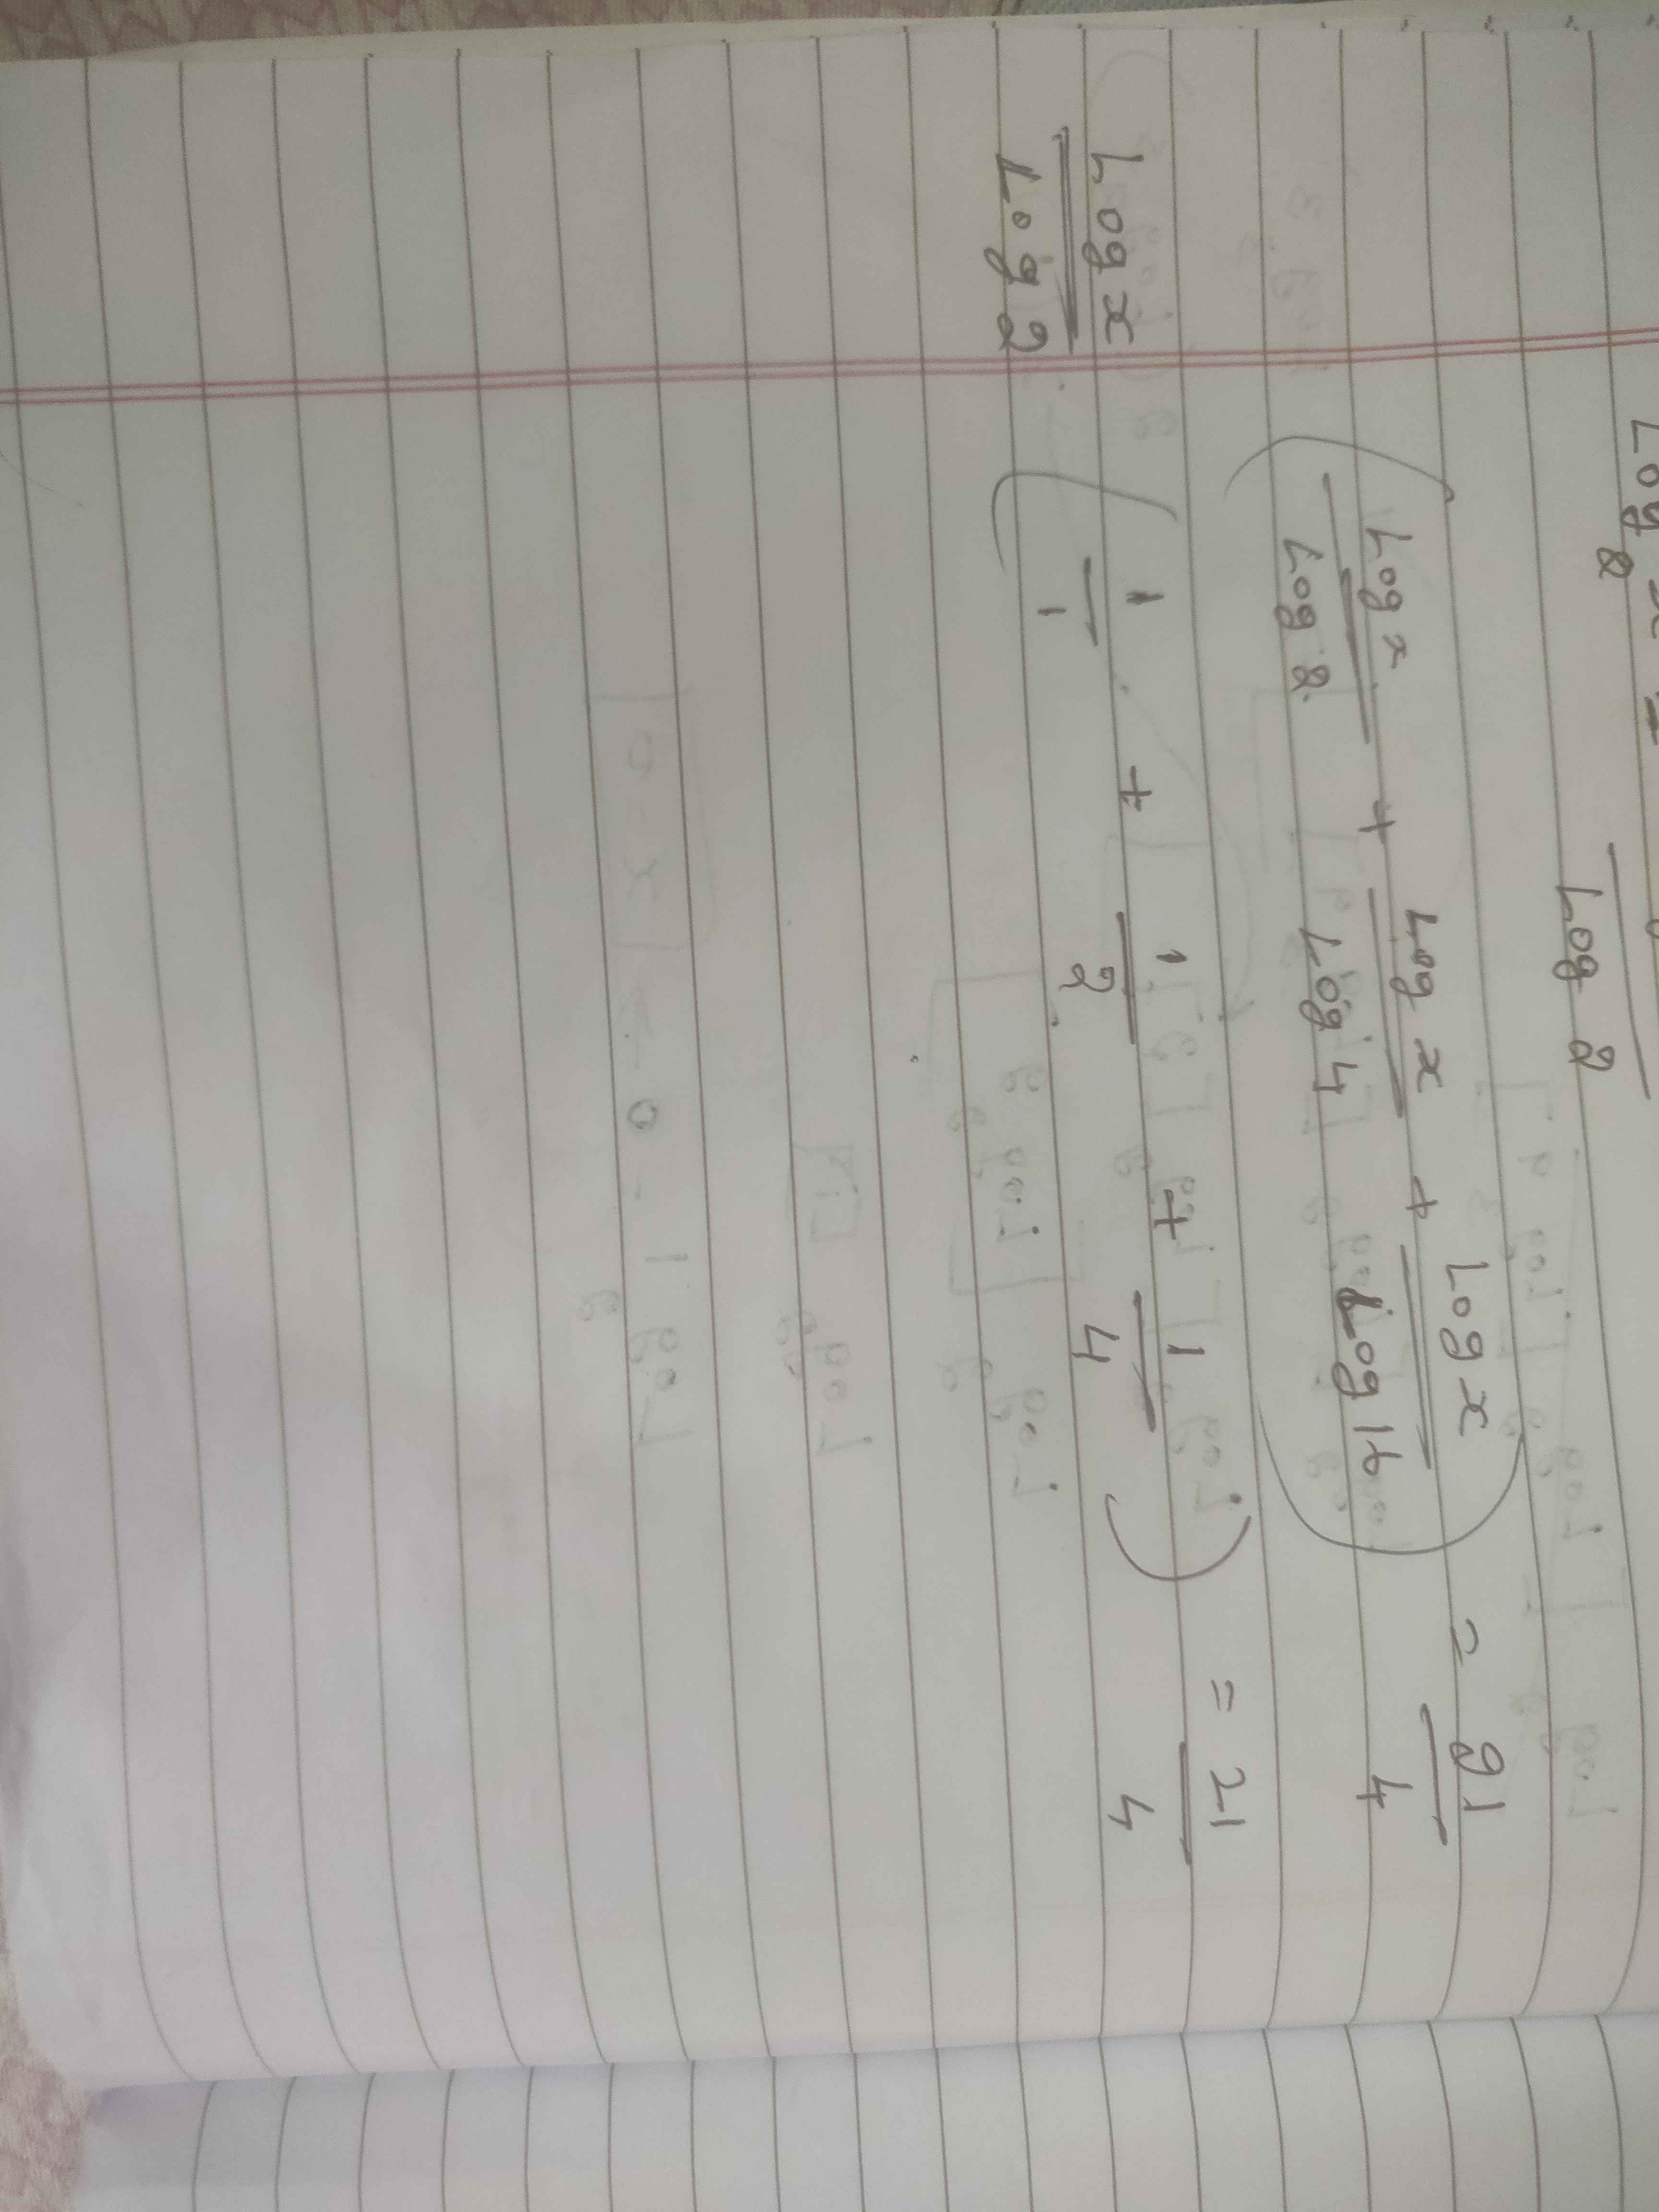 Log₂ x =
Log 2
( Log x / Log 2 + Log x / Log 4 + Log x / Log 16 ) = 21 / 4
Log x / Log 2 ( 1 / 1 + 1 / 2 + 1 / 4 ) = 21 / 4